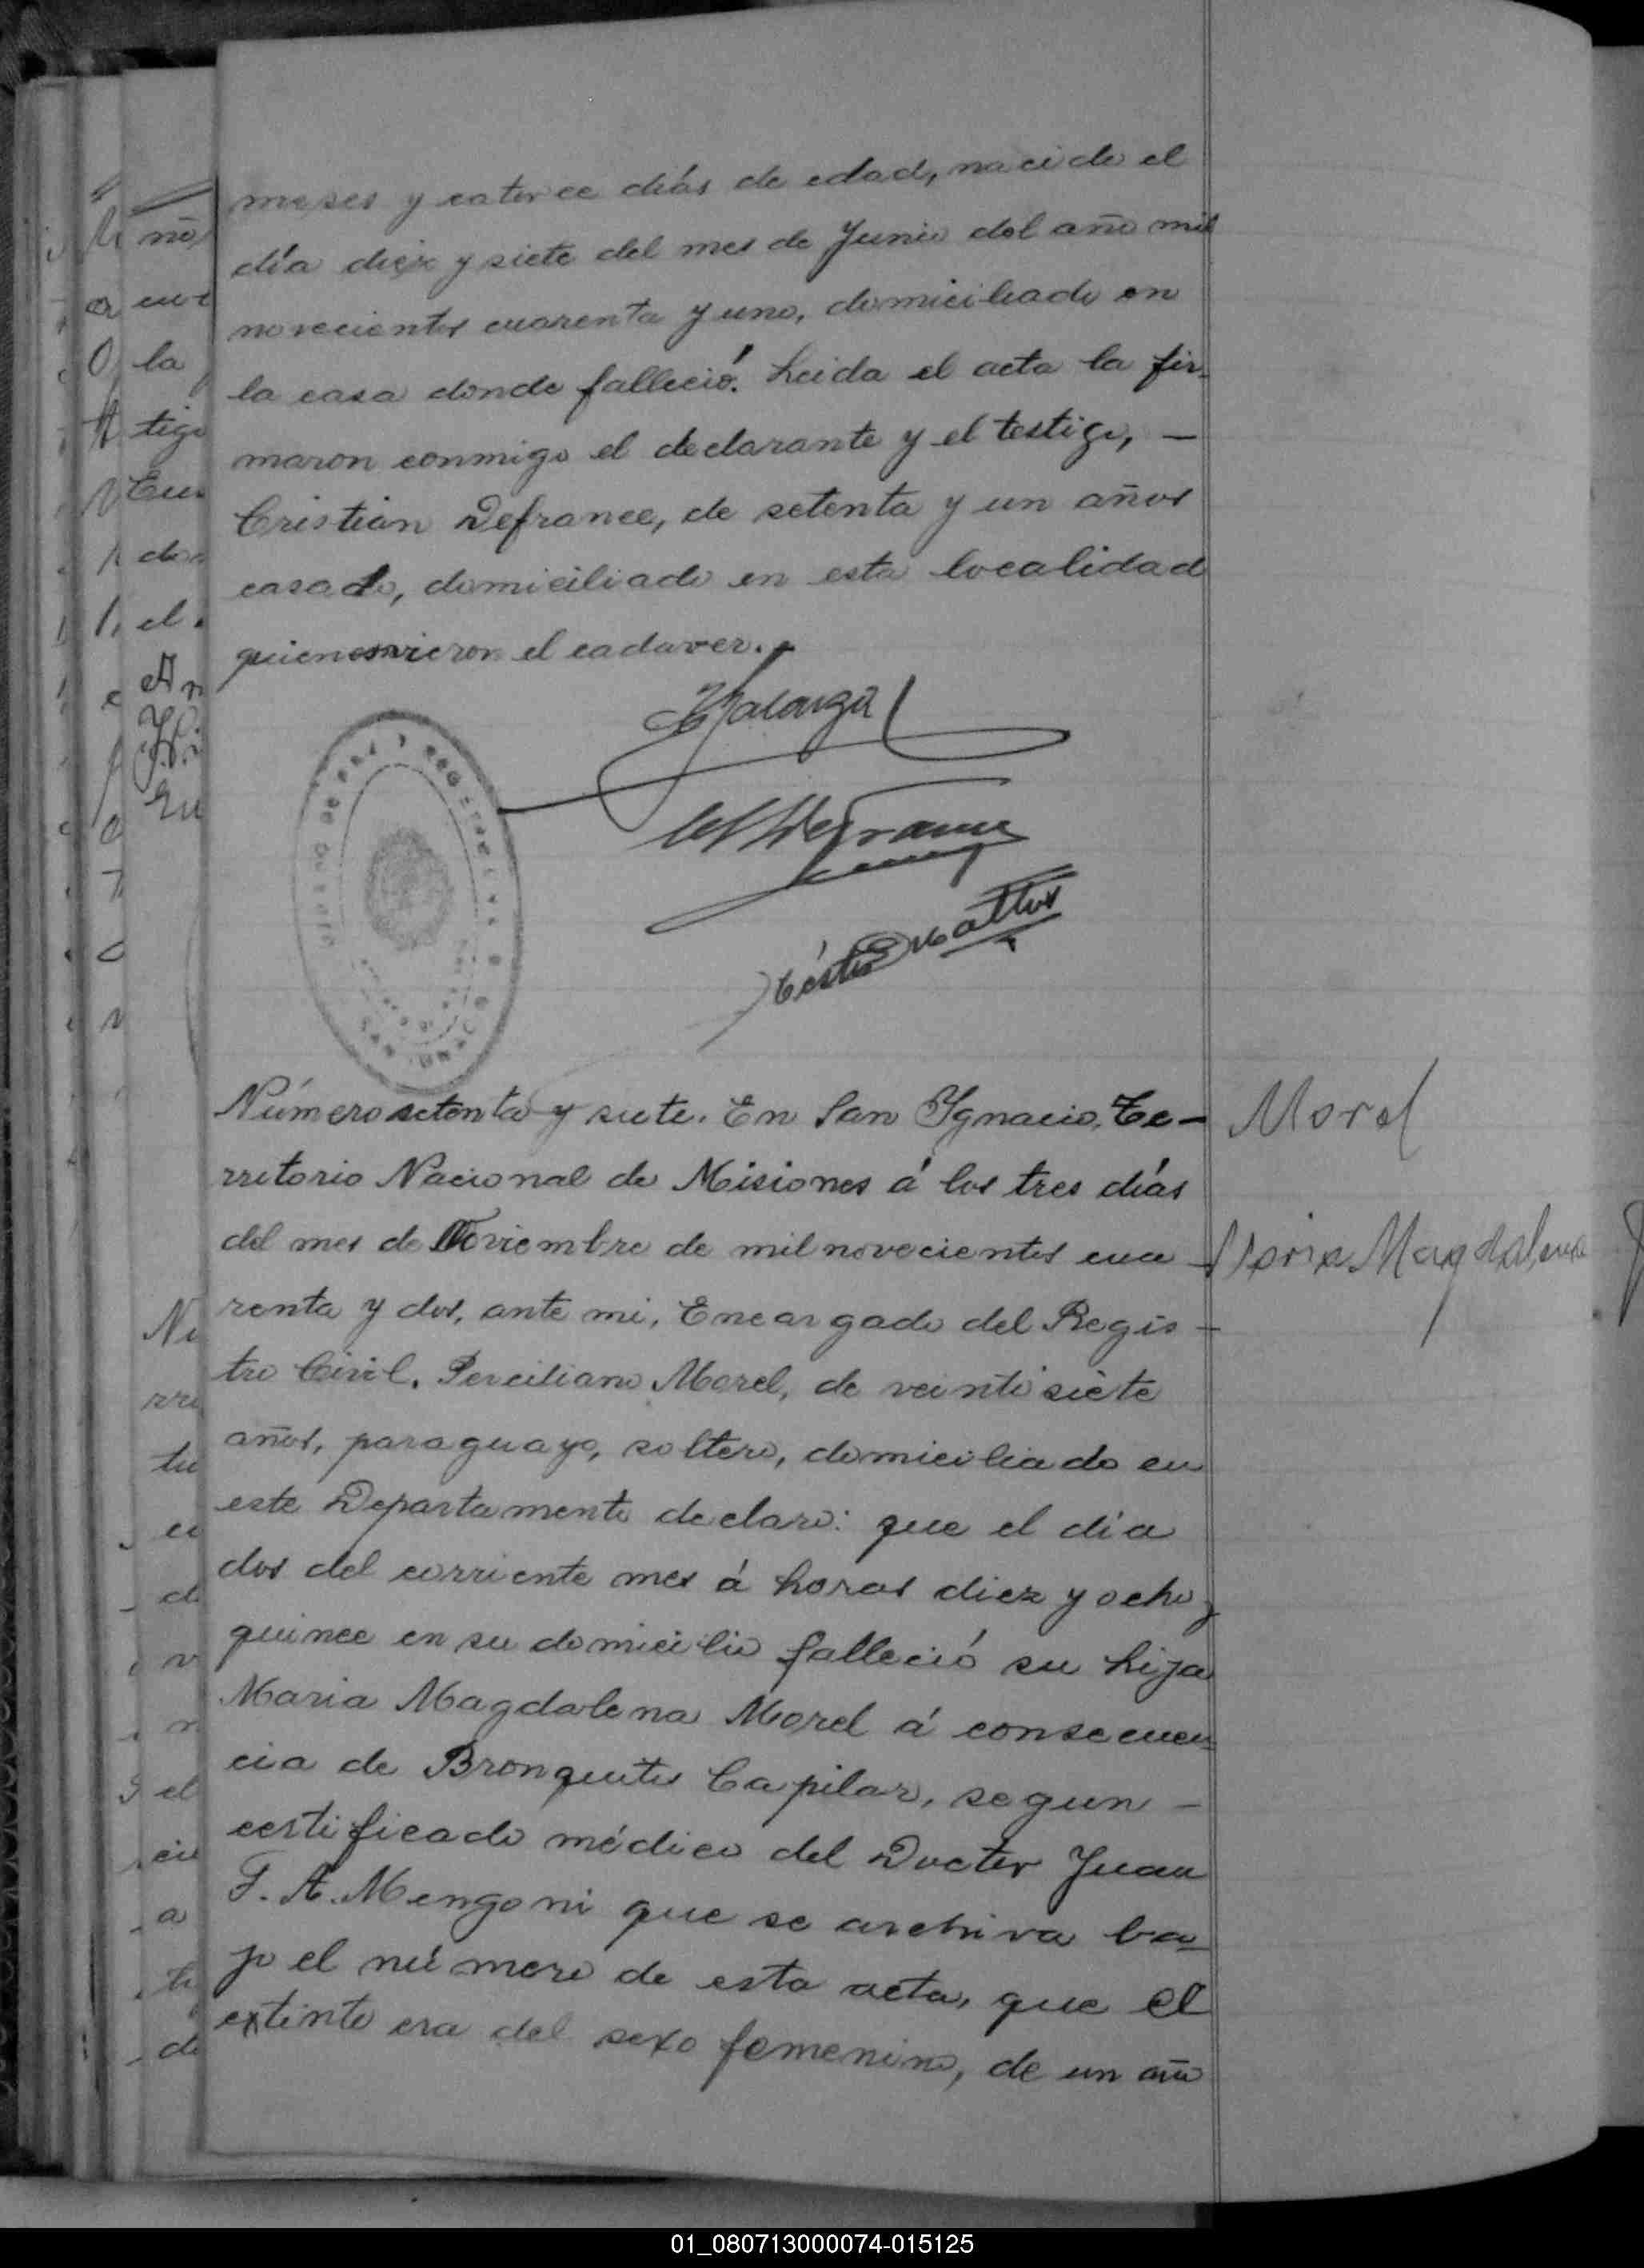 meses y catorce días de edad, nacido el
día diez y siete del mes de Junio del año mil
novecientos cuarenta y uno, domiciliado en
la casa donde falleció. Leida el acta la fir-
maron conmigo el declarante y el testigo, —
Cristian Defrance, de setenta y un años
casado, domiciliado en esta localidad
quienes vieron el cadaver.
Defrance
Mattos
Número setenta y siete. En San Ygnacio, Te- Morel
rritorio Nacional de Misiones á los tres días
del mes de Noviembre de mil novecientos cua- Maria Magdalena
renta y dos, ante mi, Encargado del Regis-
tro Civil, Perciliano Morel, de veintisiete
años, paraguayo, soltero, domiciliado en
este Departamento declaro: que el día
dos del corriente mes á horas diez y ocho y
quince en su domicilio falleció su hija
Maria Magdalena Morel á consecuen-
cia de Bronquitis Capilar, segun —
certificado médico del Doctor Juan
F. A. Mengoni que se archiva ba-
jo el número de esta acta, que el
extinto era del sexo femenino, de un año
01_080713000074-015125